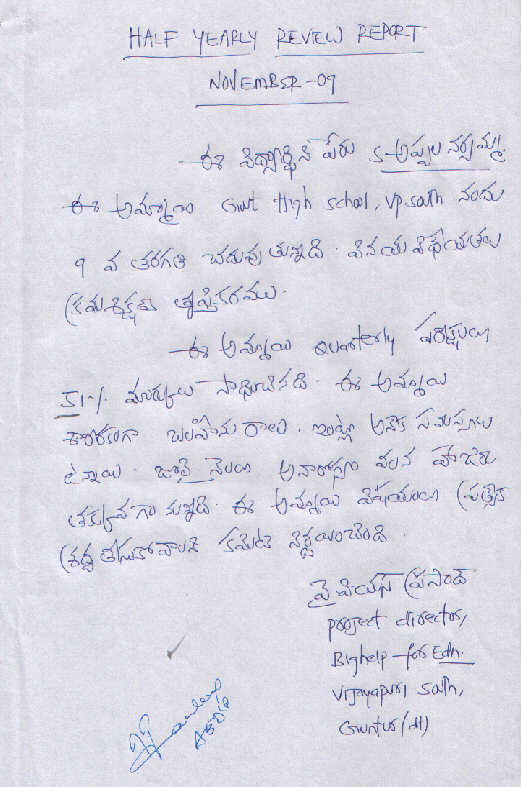 HALF YEARLY REVIEW REPORT
NOVEMBER-09
ఈ విద్యార్థిని పేరు S. అప్పల నర్సమ్మ.
ఈ అమ్మాయి Govt High school, VP.South నందు
9 వ తరగతి చదువు తున్నది. వినయ విధేయతలు
క్రమశిక్షణ తృప్తికరము.
ఈ అమ్మాయి Quarterly పరీక్షలలో
51% మార్కులు సాధించినది. ఈ అమ్మాయి
శారీరకంగా బలహీను రాలు. ఇంట్లో అనేక సమస్యలు
ఉన్నాయి. జూలై నెలలో అనారోగ్యం వలన హాజరు
తక్కువగా నున్నది. ఈ అమ్మాయి విషయంలో ప్రత్యేక
శ్రద్ధ తీసుకోవాలని కమిటి నిర్ణయించింది.
వై.వియస్ ప్రసాద్
project director,
Bighelp for Edn.
Vijayapuri South,
Guntur (dt)